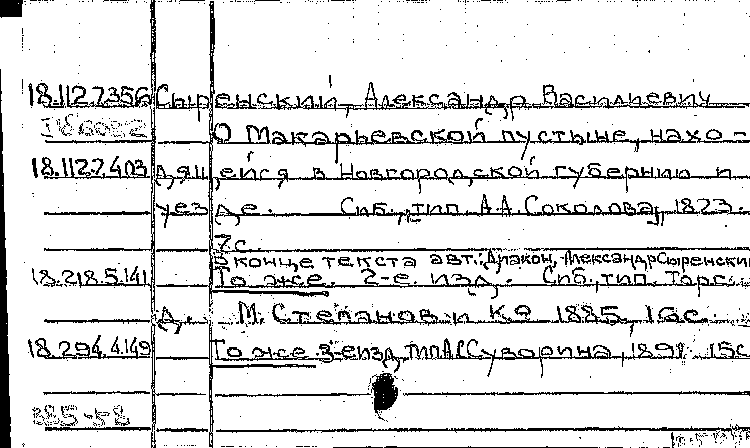 18.112.7.356 Сыренский, Александр Васильевич
О Макарьевской пустыне, нахо-
18.112.7.403 дящейся в Новгородской губернии и
уезде. Спб., тип. А.А. Соколова, 1823.
7 с.
В конце текста авт.: Диакон, Александр Сыренский
18.218.5.141 То же. 2-е. изд. Спб., тип. Торг.
д. М. Степанов и Ко 1885, 16 с.
18.294.4.149 То же 3-е изд, тип АС Суворина, 1891 15 с
385-58